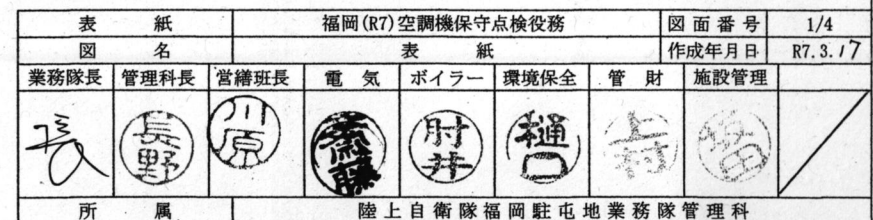 表 紙 福岡(R7)空調機保守点検役務 図面番号 1/4
図 名 表 紙 作成年月日 R7.3.17
業務隊長 管理科長 営繕班長 電気 ボイラー 環境保全 管財 施設管理
長 長野 川原 齋藤 肘井 樋口 上村
所 属 陸上自衛隊福岡駐屯地業務隊管理科